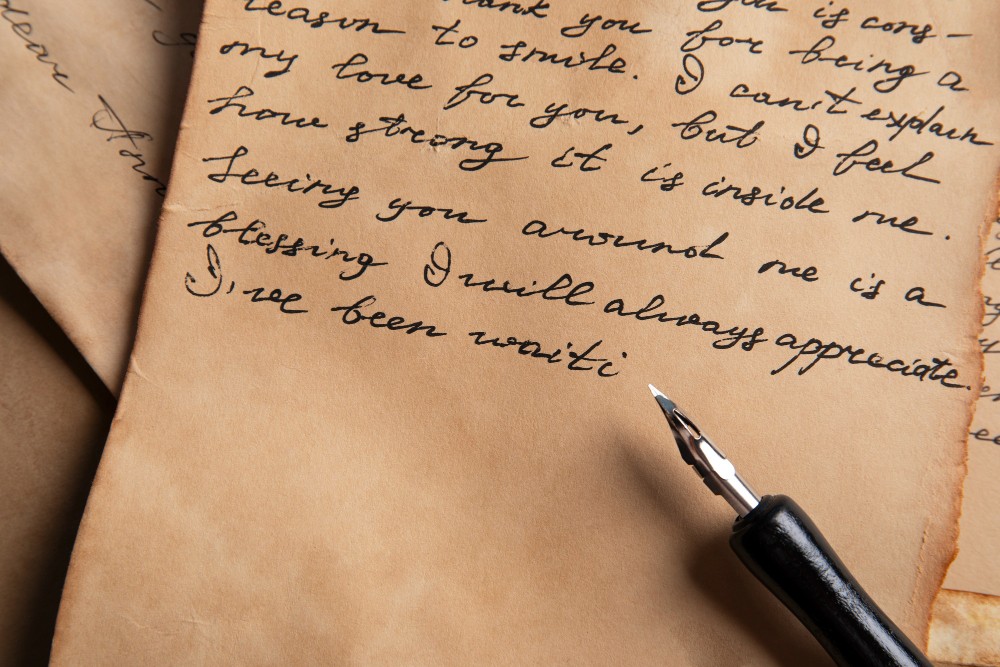 thank you is cons-
reason to smile.
you for being a
my love for you, I can't explain
how strong it is inside me.
but I feel
Seeing you around me is a
blessing I will always appreciate.
I've been waiti
dear
Ann